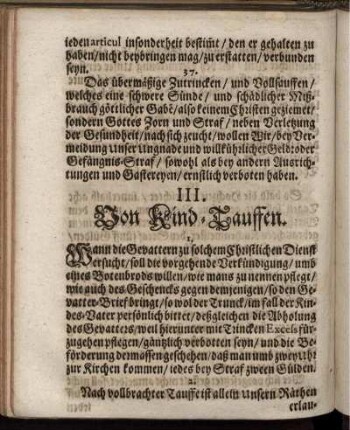 iedenarticul insonderheit bestim̃t / den er gehalten zu
haben / nicht beybringen mag / zu erstatten / verbunden
seyn.
37.
Das übermäßige Zutrincken / und Vollsauffen /
welches eine schwere Sünde / und schädlicher Miß-
brauch göttlicher Gabe / also keinem Christen gezieinet /
sondern Gottes Zorn und Straf / neben Verletzung
der Gesundheit / nach sich zeucht / wollen Wir / bey Ver-
meidung unser Ungnade und willkührlicher Geld: oder
Gefängnis-Straf / sowohl als bey andern Ausrich-
tungen und Gastereyen / ernstlich verboten haben.
III.
Von Kind-Tauffen.
1.
Wann die Gevattern zu solchem Christlichen Dienst
ersucht / soll die vorgehende Verkündigung / umb
eines Botenbrods willen / wie mans zu nennen pflegt /
wie auch des Geschencks gegen demjenigen / so den Ge-
vatter-Brief bringt / so wol der Trunck / im fall der Kin-
des-Vater persönlich bittet / deßgleichen die Abholung
des Gevatters / weil hierunter mit Trincken Excess für-
zugehen pflegen / gäntzlich verbotten seyn / und die Be-
förderung dermassen geschehen / daß man umb zwey Uhr
zur Kirchen kommen / iedes bey Straf zween Gülden.
2.
Nach vollbrachter Tauffe ist allein unsern Räthen
erlau-